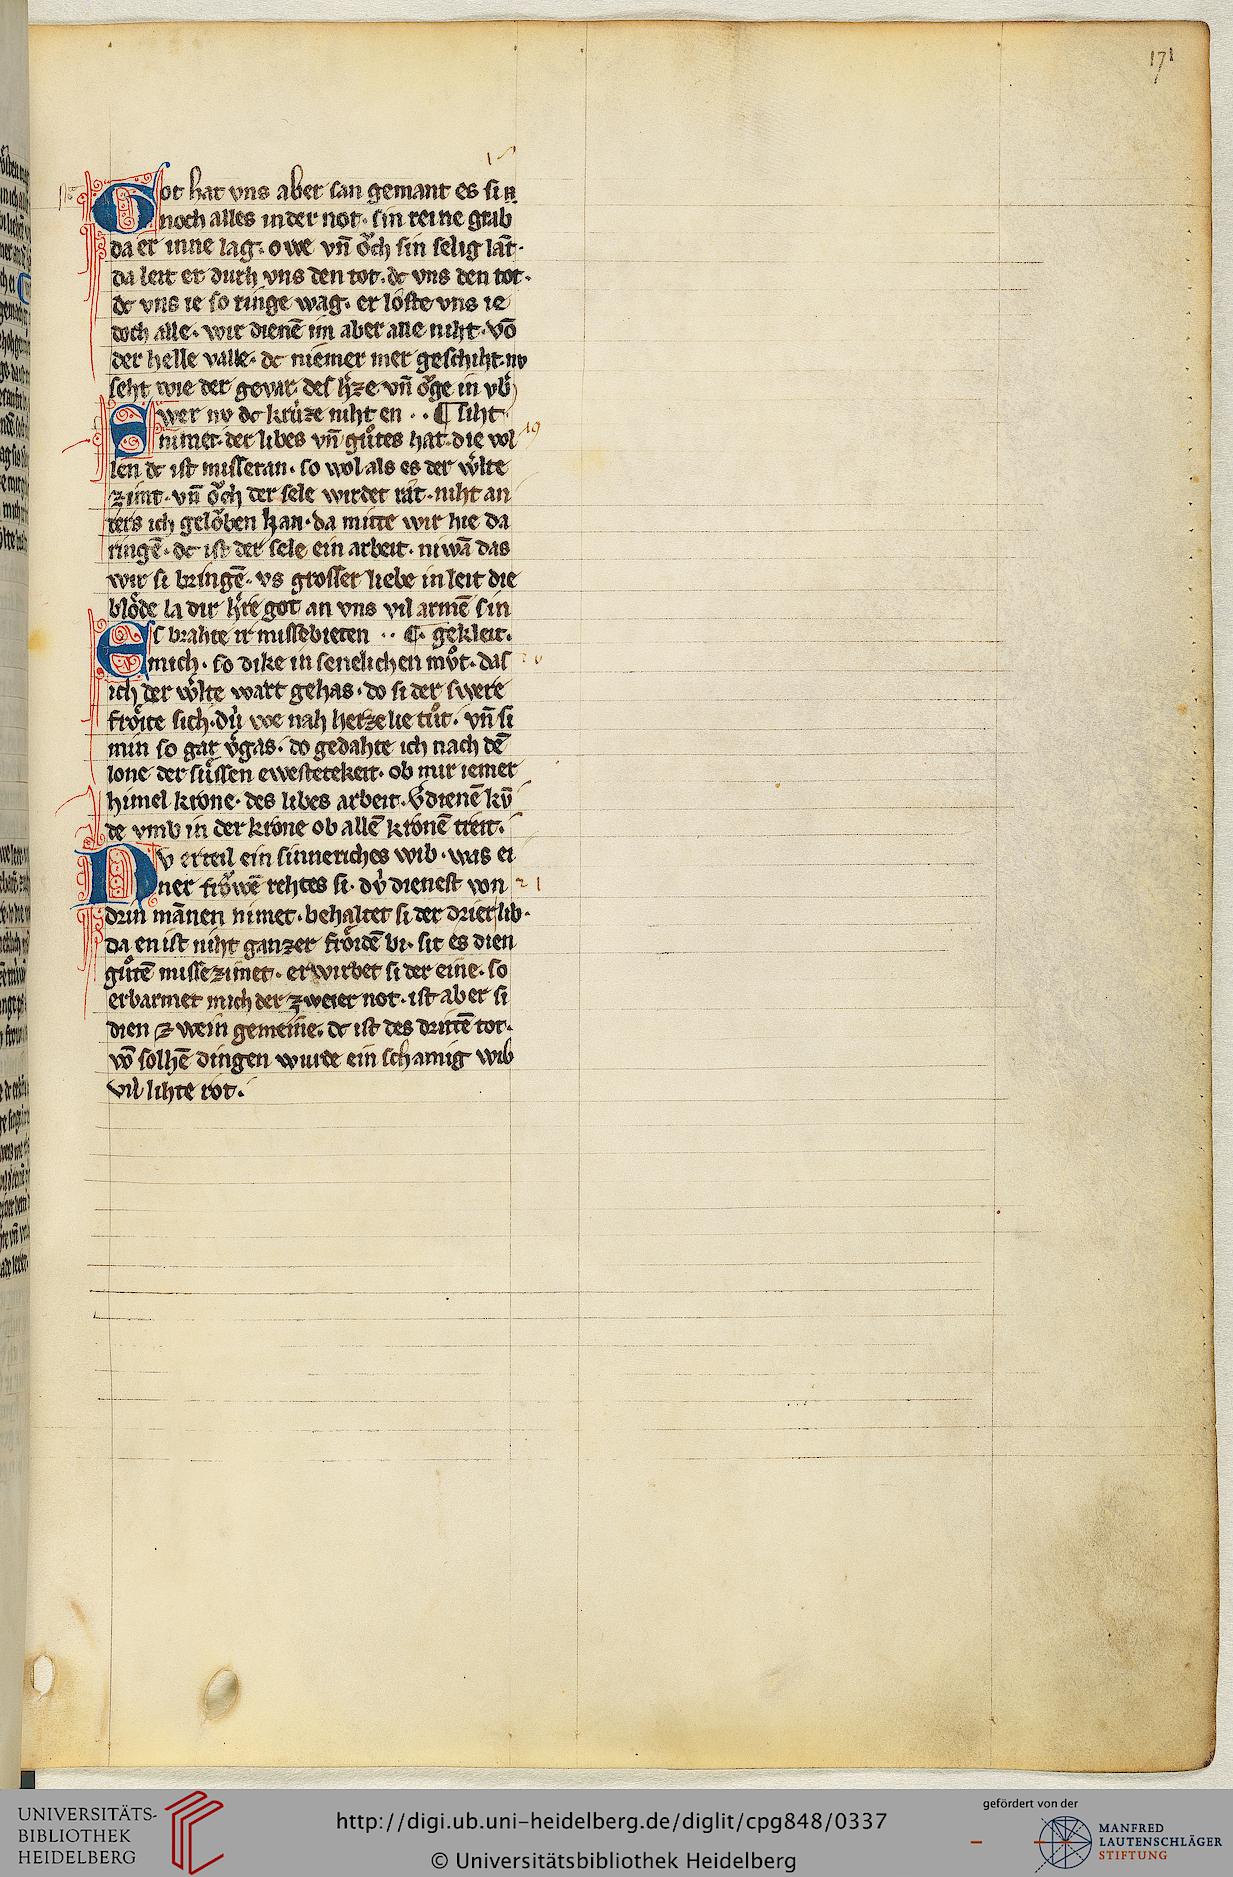 171
Got hat vns aber san gemant es si n
noch alles in der not· sin reine grab
da er inne lag· owe vn̄ oͮch sin selig lāt·
da leit er durh vns den tot· dc vns den tot·
dc vns ie so ringe wag· er loste vns ie
doch alle· wir dienē im aber alle niht· vō
der helle valle· dc niemer mer geschiht· nv
seht wie der gevar· des h̾ze vn̄ oͮge in vb̾
Swer nv dc krúze niht en ·· ¶ siht
nimet· der libes vn̄ guͦtes hat· die wol
len dc ist missetan· so wol als es der w̾lte
zimt· vn̄ oͮch der sele wirdet rat· niht an
ders ich geloͮben kan· da mitte wir hie da
ringē· dc ist der sele ein arbeit· niwā das
wir si bringē· vs grosser liebe in leit die
bloͤde la dir h̾re got an vns vil armē sin
Es brahte ir missebieten ·· ¶· gekleit·
mich· so dike in senelichen muͦt· das
ich der w̾lte wart gehas· do si der swere
froͤite sich· dú we nah herzelie tuͦt· vn̄ si
min so gar v̾gas· do gedahte ich nach dē
lone· der suͤssen ewestetekeit· ob mir iemer
himel krone· des libes arbeit· v̾dienē kv̄
de vmb in der krone ob allē kronē treit·
Nv erteil ein sinneriches wib· was ei
ner froͮwē rehtes si· dv́ dienest von
drin mānen nimet· behaltet si der drier lib·
da en ist niht ganzer froͤidē bi· sit es dien
guͦtē missezimet· erwirbet si der eine· so
erbarmet mich der zweier not· ist aber si
dien zwein gemeine· dc ist des drittē tot·
vō solhē dingen wurde ein schamig wib
vil lihte rot·
UNIVERSITÄTS-
BIBLIOTHEK
HEIDELBERG
http://digi.ub.uni-heidelberg.de/diglit/cpg848/0337
© Universitätsbibliothek Heidelberg
gefördert von der
MANFRED
LAUTENSCHLÄGER
STIFTUNG